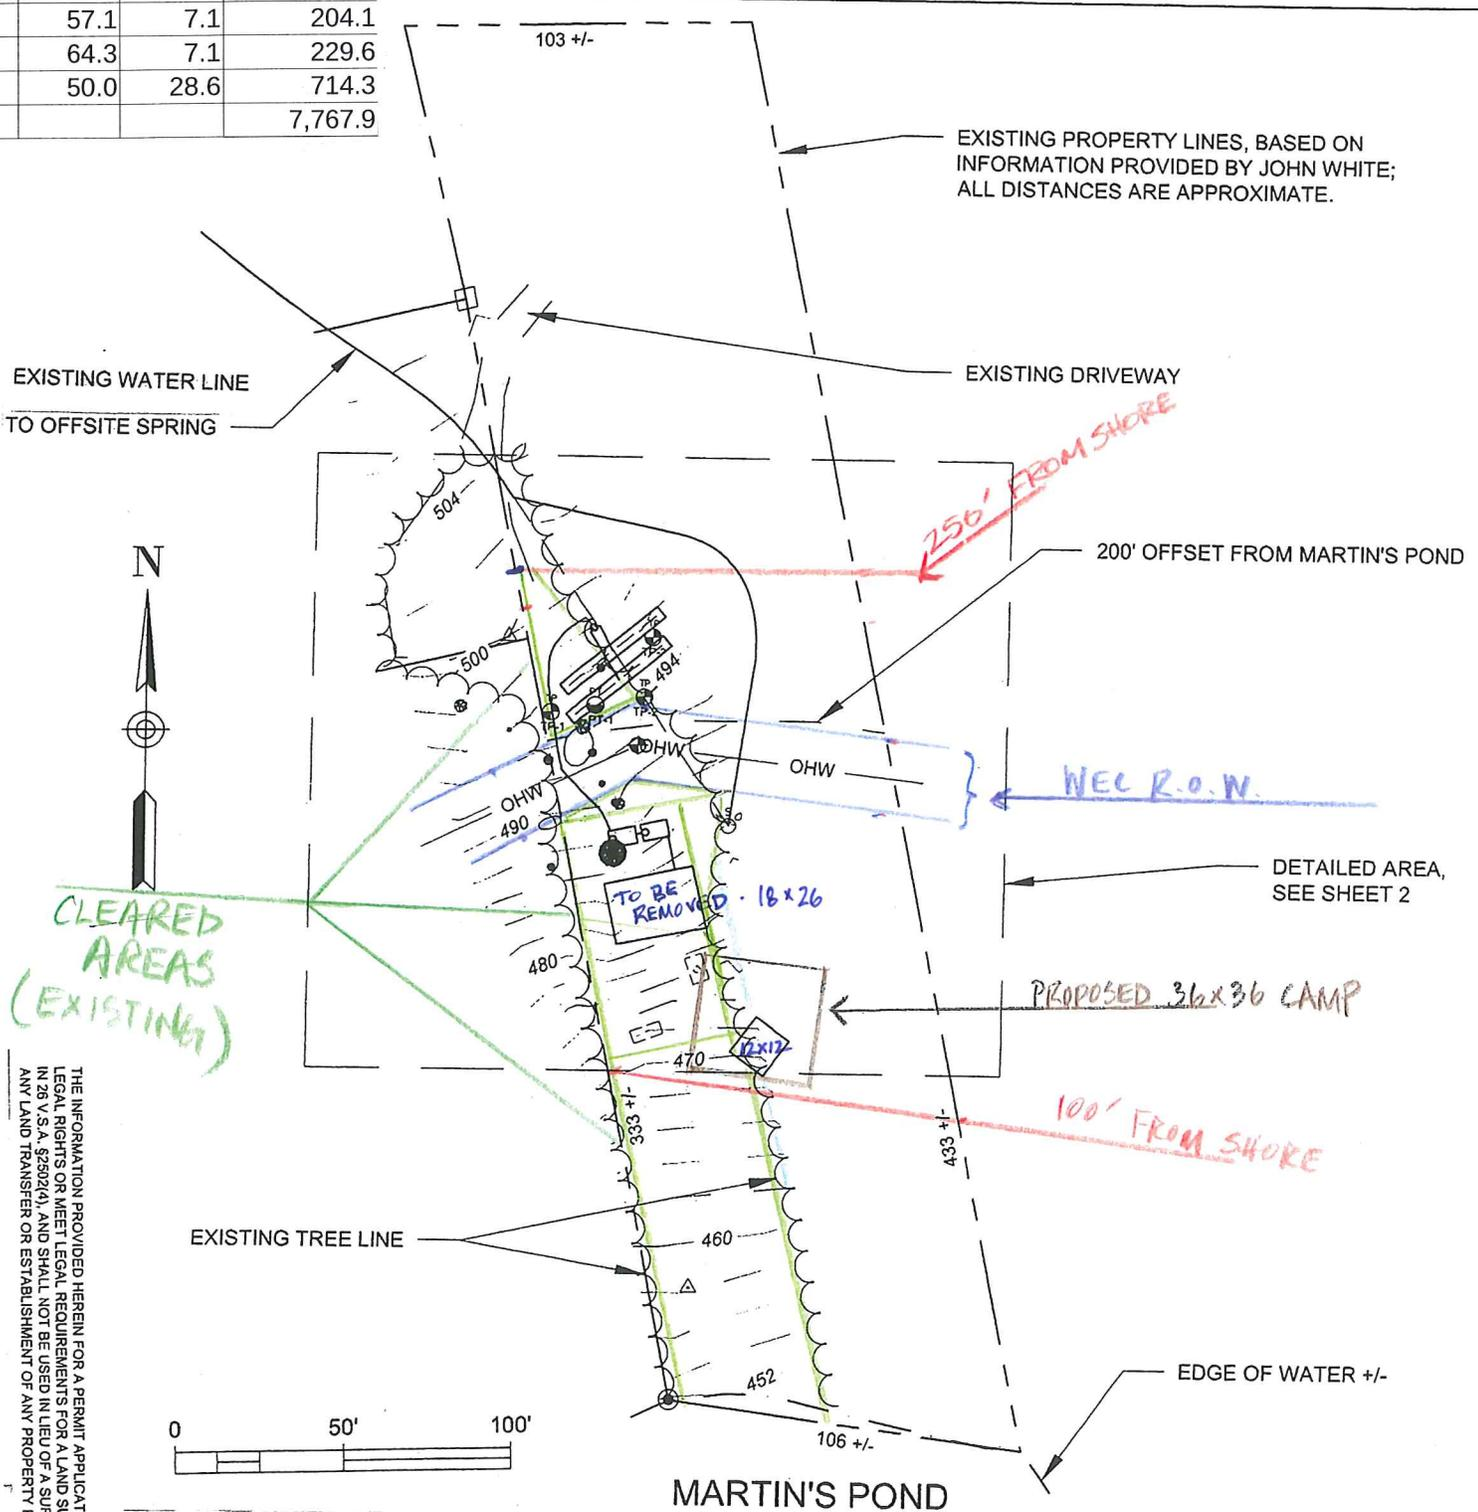 57.1 7.1 204.1
64.3 7.1 229.6
50.0 28.6 714.3
7,767.9
103 +/-
EXISTING PROPERTY LINES, BASED ON
INFORMATION PROVIDED BY JOHN WHITE;
ALL DISTANCES ARE APPROXIMATE.
EXISTING WATER LINE
TO OFFSITE SPRING
EXISTING DRIVEWAY
256' FROM SHORE
504
N
200' OFFSET FROM MARTIN'S POND
500
494
TP-1
PT-1
TP
OHW
OHW
OHW
WEC R.O.W.
490
DETAILED AREA,
SEE SHEET 2
CLEARED
AREAS
(EXISTING)
TO BE
REMOVED - 18x26
480
PROPOSED 36x36 CAMP
12x12
470
333 +/-
433 +/-
100' FROM SHORE
EXISTING TREE LINE
460
452
EDGE OF WATER +/-
106 +/-
0 50' 100'
MARTIN'S POND
THE INFORMATION PROVIDED HEREIN FOR A PERMIT
LEGAL RIGHTS OR MEET LEGAL REQUIREMENTS FOR A LAND
IN 26 V.S.A. §2502(4), AND SHALL NOT BE USED IN LIEU OF A
ANY LAND TRANSFER OR ESTABLISHMENT OF ANY PROPERTY